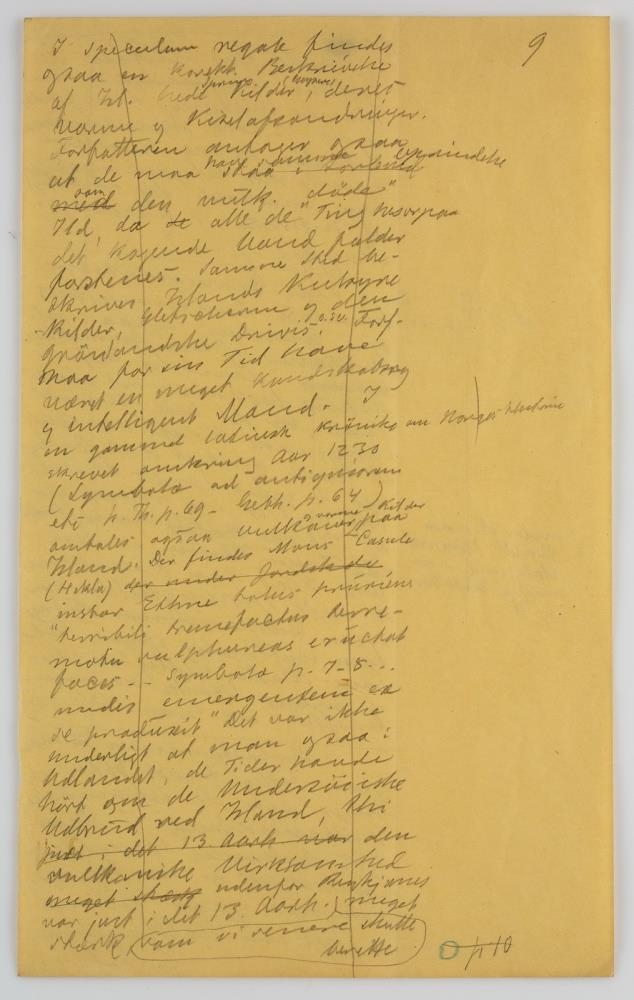 9
I speculum regale findes
ogsaa en korrekt Beskrivelse
af Isl. hede Kilder, deres
Varme og Kiselafsondringer.
Forfatteren antager ogsaa
at de maa have samme Oprindelse
som den vulk. "döde"
Ild, da de alle de Ting hvorpaa
det kogende Vand falder
forstenes. Samme Sted be-
skrives Islands Kulsyre
Kilder, Gletscherne og den
grönlandske Drivis. o.s.v. Forf-
maa for sin Tid have
været en meget kundskabsrig
og intelligent Mand. I
en gammel latinsk Krönike om Norges Historie
skrevet omkring Aar 1230
(Symbolæ ad antiquiorem
etc p. Th. p. 69 - Geth. p. 64)
omtales ogsaa vulkaner og varme Kilder paa
Island. Der findes Mons Casule
(Hekla) der under Jordskælv
instar Ethne totus pruriens
"terribili tremefactus terre-
motu sulphureas eructat
faces - - Symbolæ p. 7-8...
undis emergentem ex
se produxit" Det var ikke
underligt at man ogsaa i
Udlandet, de Tider havde
hört om de undersöiske
Udbrud ved Island, thi
just i det 13 Aarh var den
vulkanske Virksomhed
meget stærk udenfor Reykjanes
var just i det 13. Aarh. meget
stærk, som vi senere skulle
berette p 10